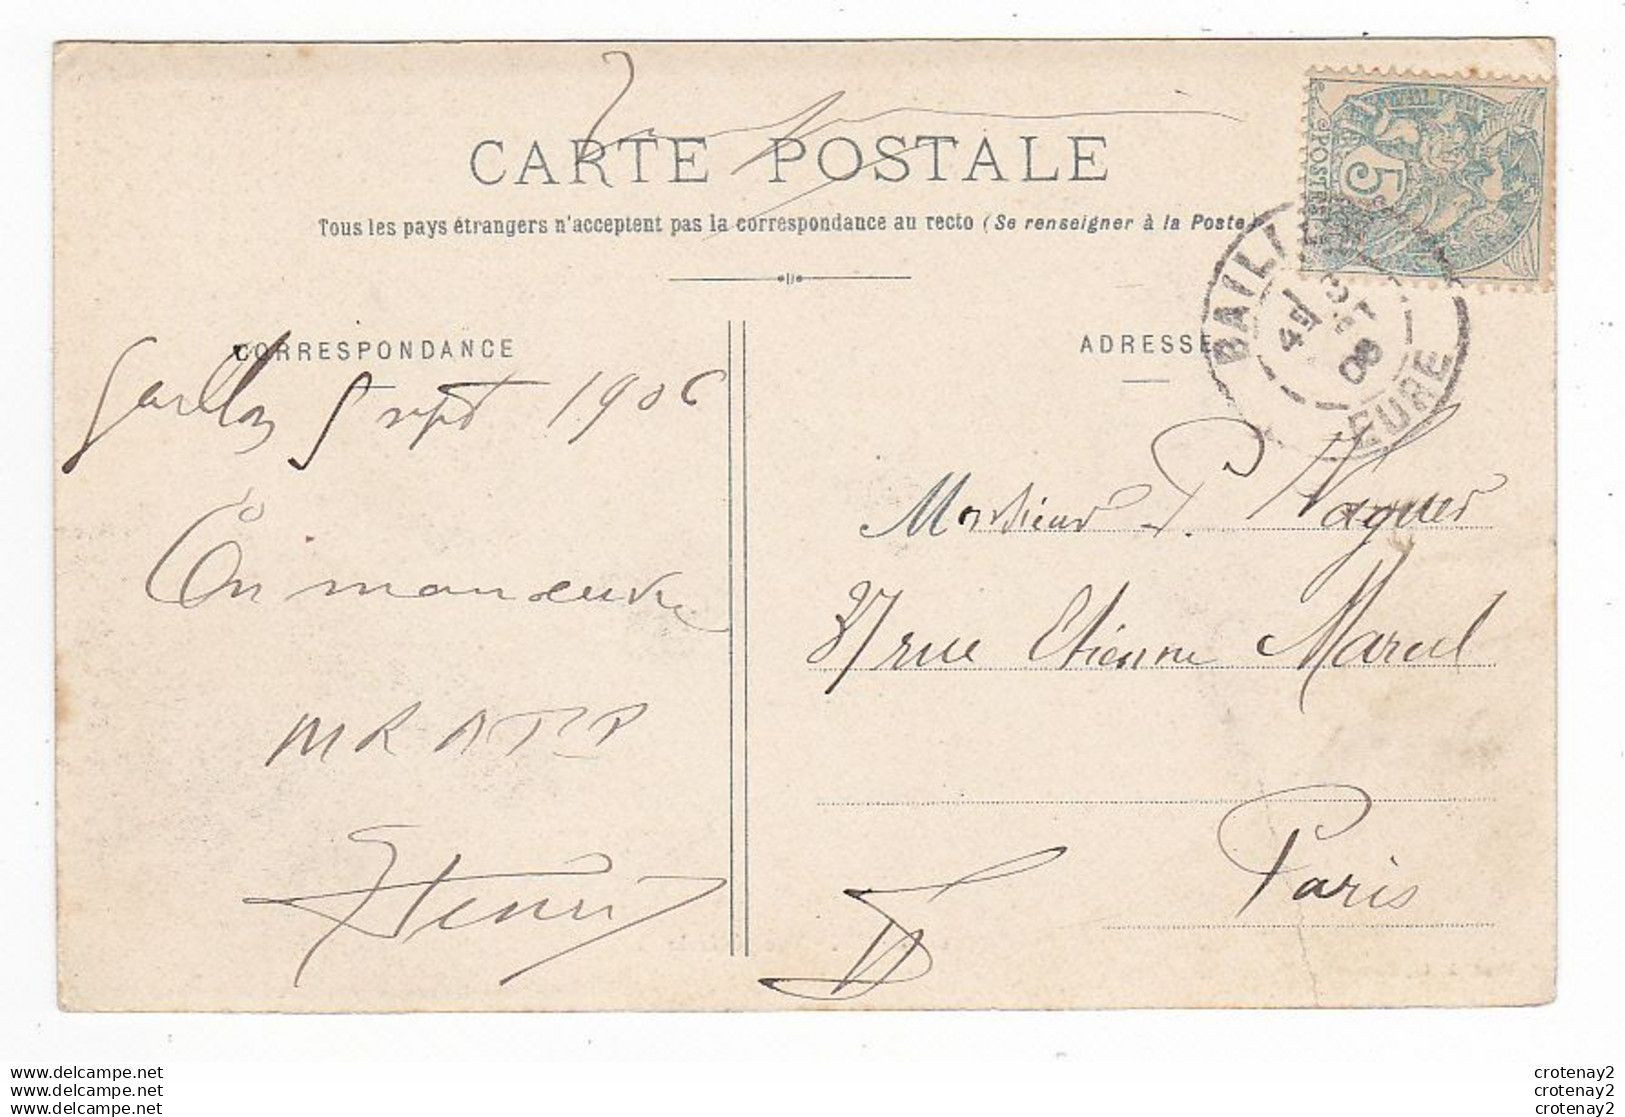 CARTE POSTALE
Tous les pays étrangers n'acceptent pas la correspondance au recto (Se renseigner à la Poste)
POSTES
5
CORRESPONDANCE
ADRESSE
EURE
Gaillon 5 sept 1906
En manœuvre
Henri
Monsieur P. Vaguer
37 rue Etienne Marcel
Paris
www.delcampe.net
www.delcampe.net
www.delcampe.net
crotenay2
crotenay2
crotenay2